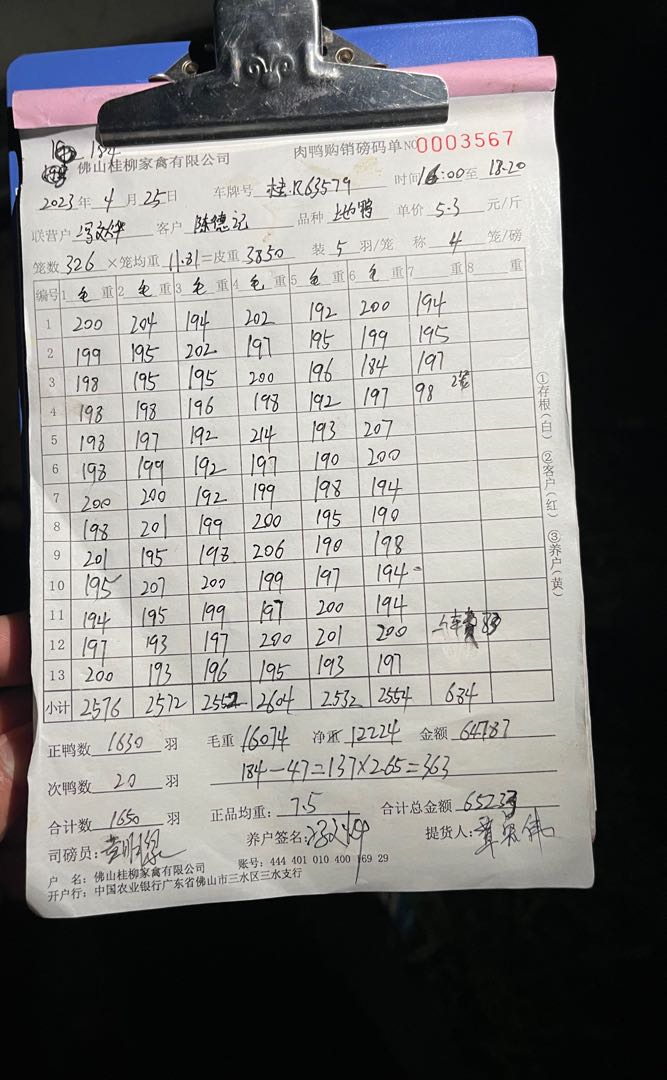 184
佛山桂柳家禽有限公司 肉鸭购销磅码单 NO 0003567
2023年 4 月 25 日 车牌号 桂.R63579 时间 16:00 至 18.20
联营户 客户 陈德记 品种 单价 5.3 元/斤
笼数 326 ×笼均重 11.81 =皮重 3850 装 5 羽/笼 称 4 笼/磅
编号 1 毛 重 2 毛 重 3 毛 重 4 毛 重 5 毛 重 6 毛 重 7 重 8 重
1 200 204 194 202 192 200 194
2 199 195 202 197 195 199 195
3 198 195 195 200 196 184 197
4 198 198 196 198 192 197 98 2笼
5 198 197 192 214 193 207
6 198 199 192 197 190 200
7 200 200 192 199 198 194
8 198 201 199 200 195 190
9 201 195 198 206 190 198
10 195 207 200 199 197 194
11 194 195 199 197 200 194
12 197 193 197 200 201 200
13 200 193 196 195 193 197
小计 2576 2572 2552 2604 2532 2554 684
正鸭数 1630 羽 毛重 16074 净重 12224 金额 64787
次鸭数 20 羽 184-47=137×2.65=363
合计数 1650 羽 正品均重: 7.5 合计总金额
司磅员: 养户签名: 提货人:
户 名: 佛山桂柳家禽有限公司 账号: 444 401 010 400 169 29
开户行: 中国农业银行广东省佛山市三水区三水支行
①存根(白) ②客户(红) ③养户(黄)